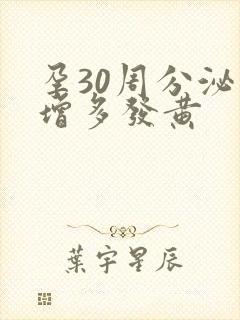 孕30周分泌
增多發黃
葉宇星辰